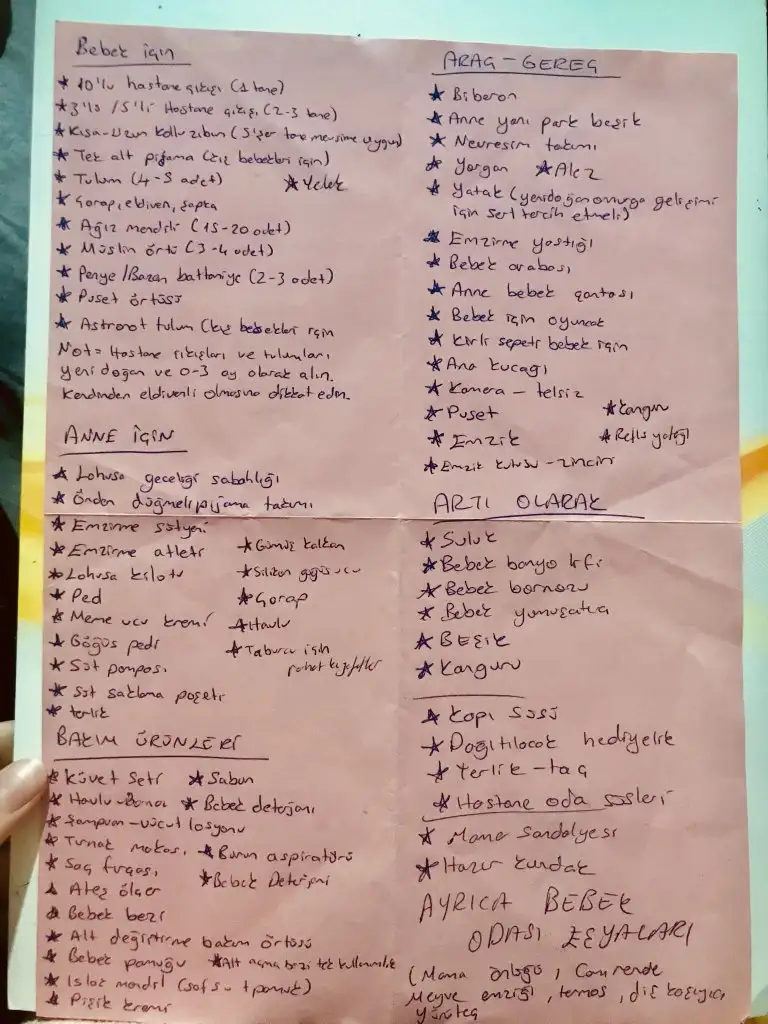 Bebek için
★ 10'lu hastane çıkışı (1 tane)
★ 3'lü /5'li Hastane çıkışı (2-3 tane)
★ Kısa-Uzun kollu zıbın (5'şer tane mevsime uygun)
★ Tek alt pijama (kış bebekleri için)
★ Tulum (4-5 adet) ★ Yelek
★ Çorap, eldiven, şapka
★ Ağız mendili (15-20 adet)
★ Müslin örtü (3-4 adet)
★ Penye /Bazen battaniye (2-3 adet)
★ Puset örtüsü
★ Astronot tulum (kış bebekleri için
Not= Hastane çıkışları ve tulumları
yeni doğan ve 0-3 ay olarak alın.
Kendinden eldivenli olmasına dikkat edin.
ANNE İÇİN
★ Lohusa geceliği sabahlığı
★ Önden düğmeli pijama takımı
★ Emzirme sütyeni
★ Emzirme atleti ★ Gümüş kalkan
★ Lohusa kilotu ★ Silikon göğüs ucu
★ Ped ★ Çorap
★ Meme ucu kremi ★ Havlu
★ Göğüs pedi ★ Taburcu için
rahat kıyafetler
★ Süt pompası
★ Süt saklama poşeti
★ terlik
BAKIM ÜRÜNLERİ
★ Küvet Seti ★ Sabun
★ Havlu- ★ Bebek deterjanı
★ Şampuan-vücut losyonu
★ Tırnak makası ★ Burun aspiratörü
★ Saç fırçası ★ Bebek Deterjni
★ Ateş ölçer
★ Bebek bezi
★ Alt değiştirme bakım örtüsü
★ Bebek pamuğu ★ Alt açma bezi tek kullanımlık
★ Islak mendil (saf su + pamuk)
★ Pişik kremi
ARAÇ-GEREÇ
★ Biberon
★ Anne yanı park beşik
★ Nevresim takımı
★ Yorgan ★ Alez
★ Yatak (yenidoğan omurga gelişimi
için sert tercih etmeli)
★ Emzirme yastığı
★ Bebek arabası
★ Anne bebek çantası
★ Bebek için oyuncak
★ Kirli sepeti bebek için
★ Ana kucağı
★ Kamera - telsiz
★ Puset ★ Kanguru
★ Emzik ★ Reflü yatağı
★ Emzik kutusu - zinciri
ARTI OLARAK
★ Suluk
★ Bebek banyo lifi
★ Bebek bornozu
★ Bebek yumuşatıcı
★ BEŞİK
★ Kanguru
★ Kapı süsü
★ Dağıtılacak hediyelik
★ Terlik - taç
★ Hastane oda süsleri
★ Mama Sandalyesi
★ Hazır kundak
AYRICA BEBEK
ODASI EŞYALARI
(Mama önlüğü,
Meyve emziği, termos, diş kaşıyıcı,
yürüteç